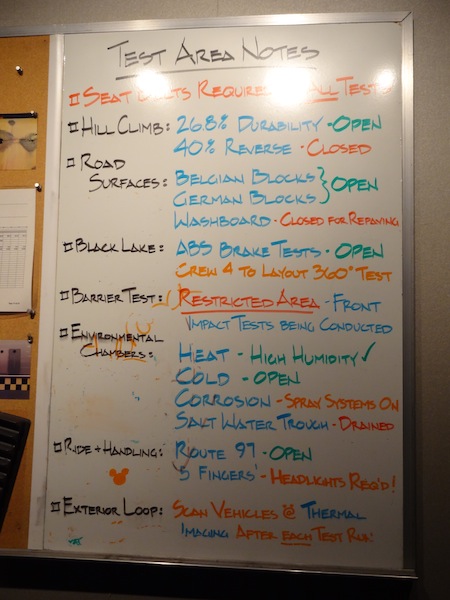 TEST AREA NOTES
SEAT BELTS REQUIRED ALL TESTS
HILL CLIMB: 26.8% DURABILITY - OPEN
40% REVERSE - CLOSED
ROAD SURFACES: BELGIAN BLOCKS } OPEN
GERMAN BLOCKS
WASHBOARD - CLOSED FOR REPAVING
BLACK LAKE: ABS BRAKE TESTS - OPEN
CREW 4 TO LAYOUT 360° TEST
BARRIER TEST: RESTRICTED AREA - FRONT
IMPACT TESTS BEING CONDUCTED
ENVIRONMENTAL CHAMBERS: HEAT - HIGH HUMIDITY ✓
COLD - OPEN
CORROSION - SPRAY SYSTEMS ON
SALT WATER TROUGH - DRAINED
RIDE + HANDLING: ROUTE 97 - OPEN
'5 FINGERS' - HEADLIGHTS REQ'D!
EXTERIOR LOOP: SCAN VEHICLES @ THERMAL
IMAGING AFTER EACH TEST RUN